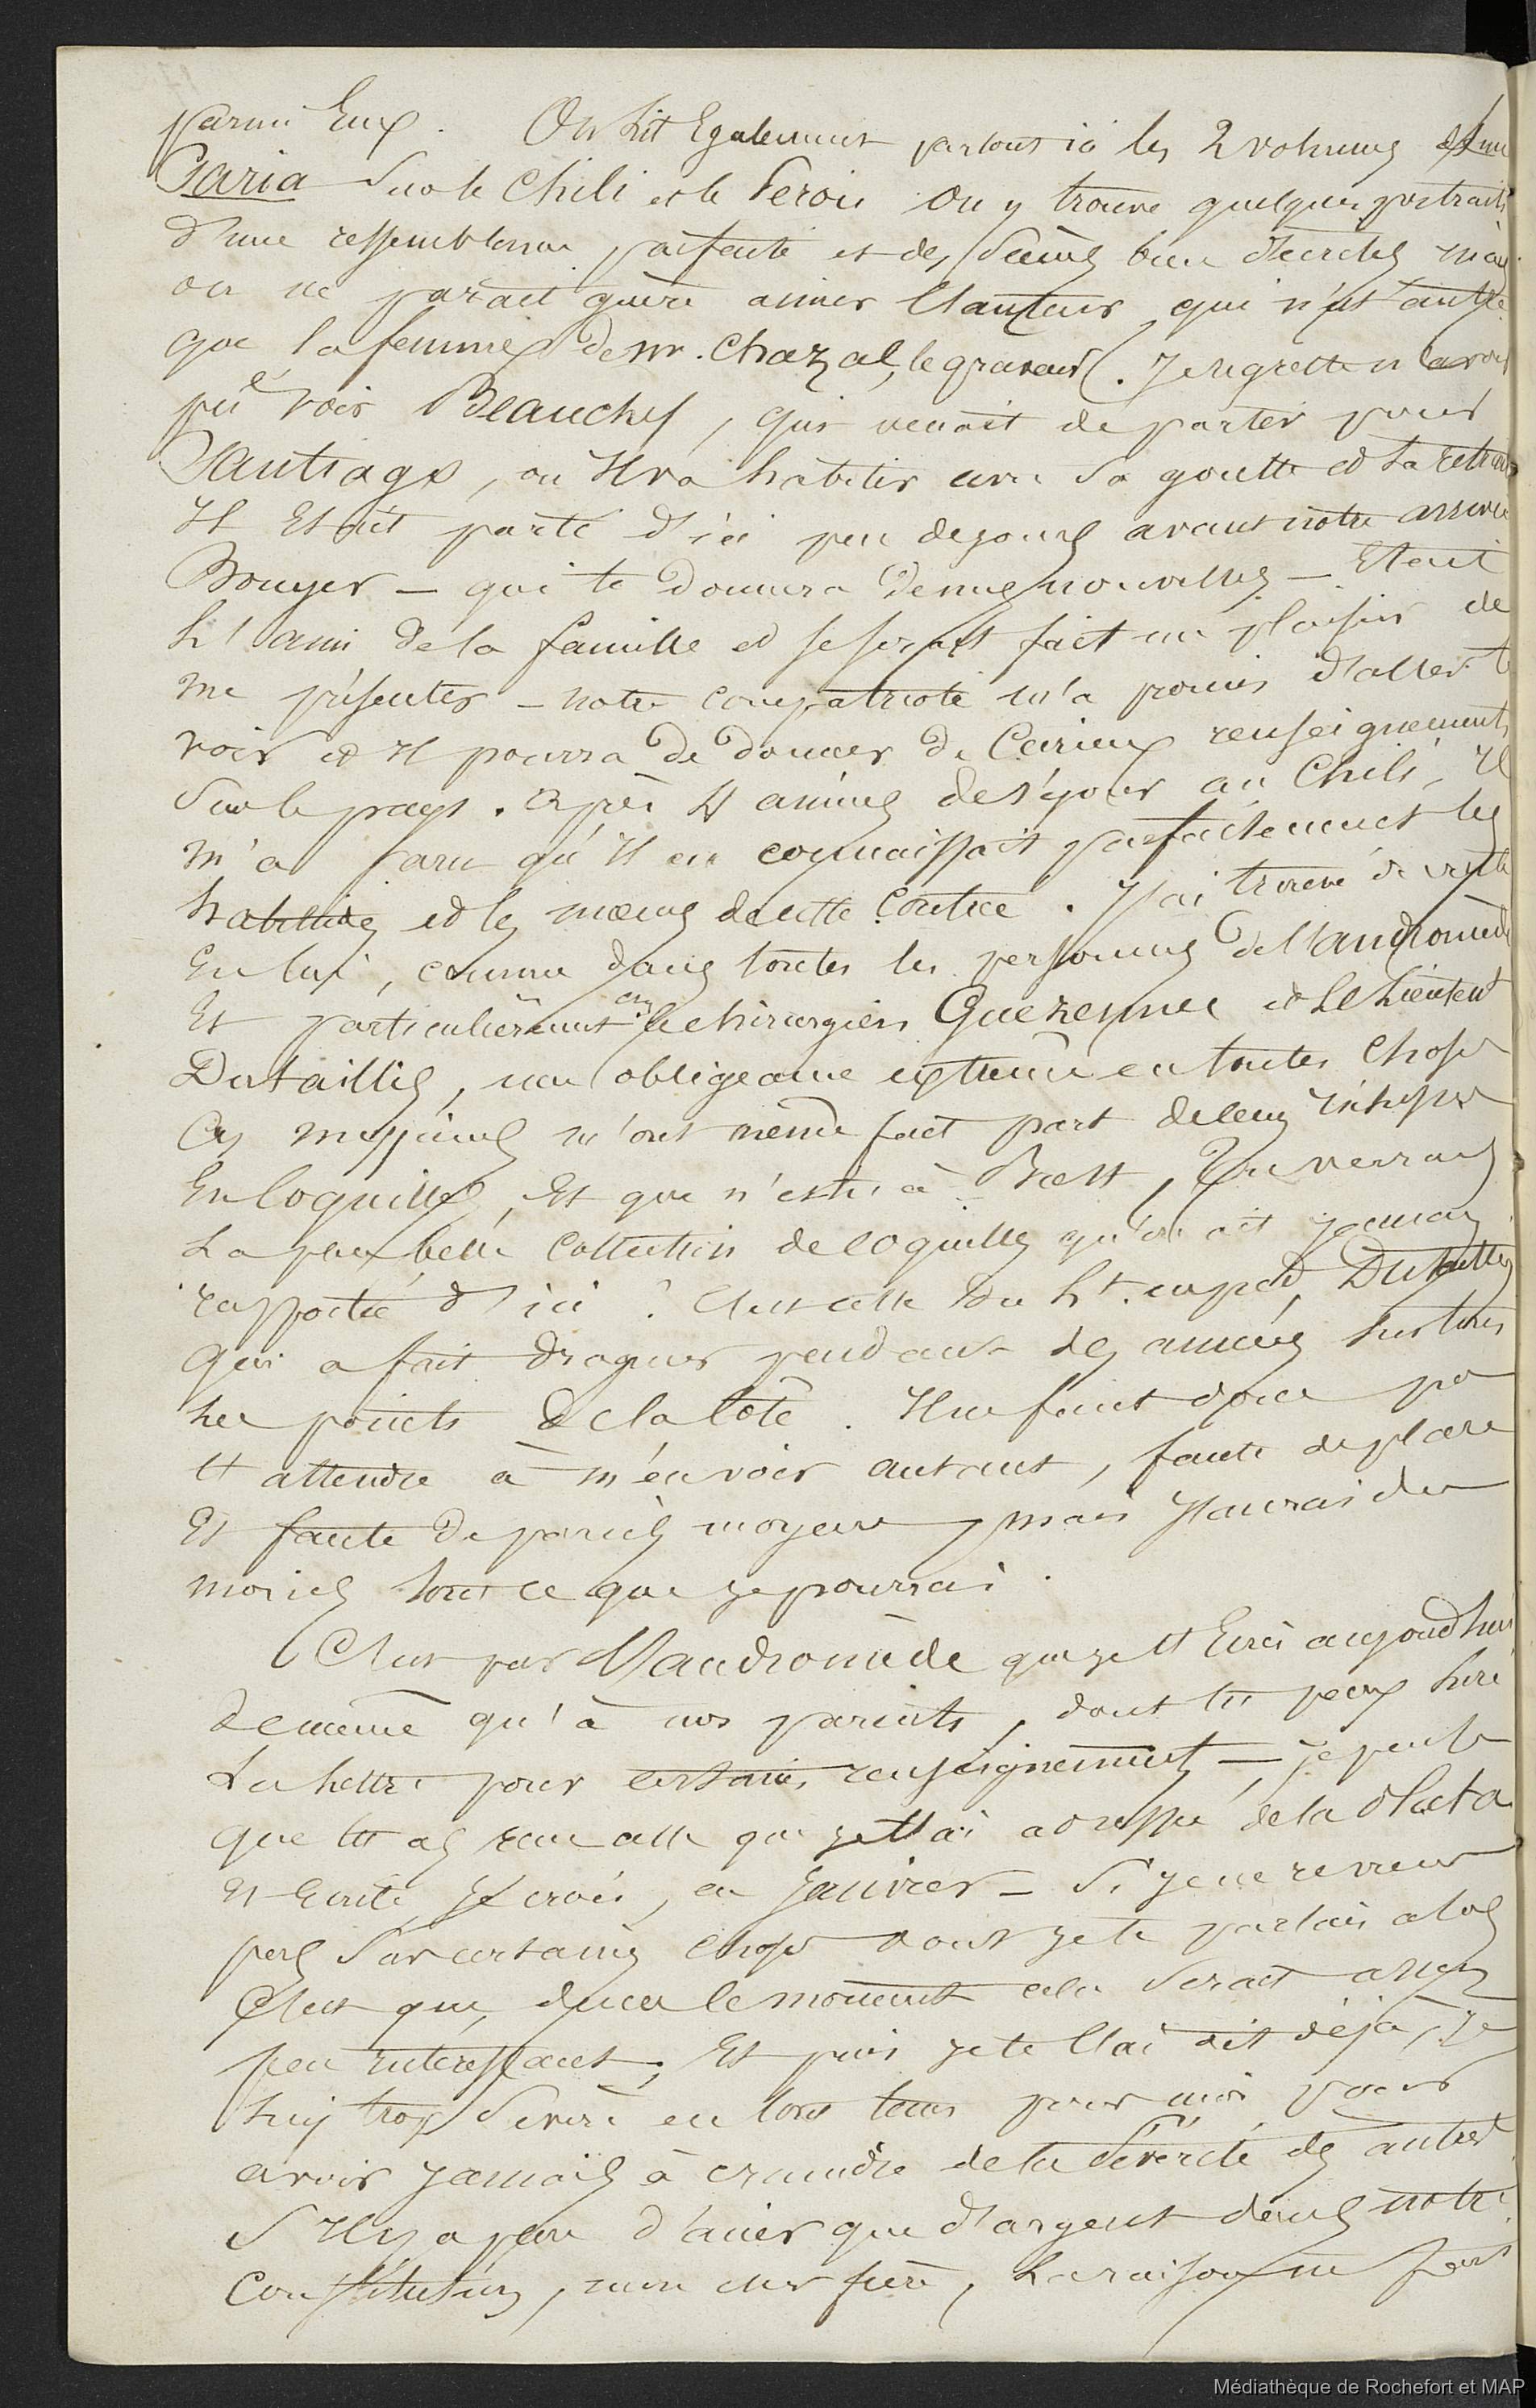 parmi Eux. On Lit Egalement partout ici les 2 volumes d'une
Paria Sur le Chili et le Perou on y trouve quelques portraits
d'une ressemblance parfaite et des Scènes bien décrites mais
on ne parait guère aimer l'auteur qui n'est autre
que la femme de mr. Chazal, le graveur. Je regrette n'avoir
pû voir Beauchef, qui venait de partir pour
Santiago, ou Il va habiter avec Sa goutte et Sa retraite
Il Etait parti d'ici peu de jours avant notre arrivée
Bouyer — qui te Donnera De mes nouvelles — Etait
L'ami De la famille et se serait fait un plaisir de
me présenter — notre compatriote m'a promis d'aller te
voir et Il pourra De donner De Curieux renseignements
Sur le pays. Après 4 années de Séjour au Chili, Il
m'a paru qu'Il en connaissait parfaitement les
habitudes et les mœurs de cette Contrée. J'ai trouvé du reste
En lui, comme dans toutes les personnes de l'andromède
Et particulièrement en le chirurgien Guezennec et le Lieutent
Dutaillis, une obligeance extrème en toutes Choses
Ces messieurs m'ont même fait part de leurs richesses
En Coquilles, Et que n'es tu à Brest, Tu verrais
La plus belle Collection de coquilles qu'on ait jamais
rapportée d'ici! C'est celle Du Lt. en pied, Dutaillis
qui a fait draguer pendant des années sur tous
les points De la Côte. Il ne faut donc pas
t'attendre à m'en voir autant, faute de place
Et faute De pareils moyens, mais J'aurai du
moins tout ce que je pourrai.
C'est par l'andromède que je t'Ecris aujourd'hui
De même qu'à nos parents, dont tu peux lire
La Lettre pour certains renseignements — je pense
que tu as reçu celle que je t'ai adressée de la Plata
Et Ecrite, Je crois, en Janvier — Si je ne reviens
pas Sur certaines choses dont je te parlais alors
C'est que, dans le moment cela Serait assez
peu intéressant; Et puis je te l'ai dit déjà, Je
suis trop Sévère en tous tems pour moi, pour
avoir jamais à craindre de la Sévérité des autres.
S'Il y a plus d'acier que d'argent dans notre
Constitution, mon cher frère, La raison ne peut
Médiathèque de Rochefort et MAP